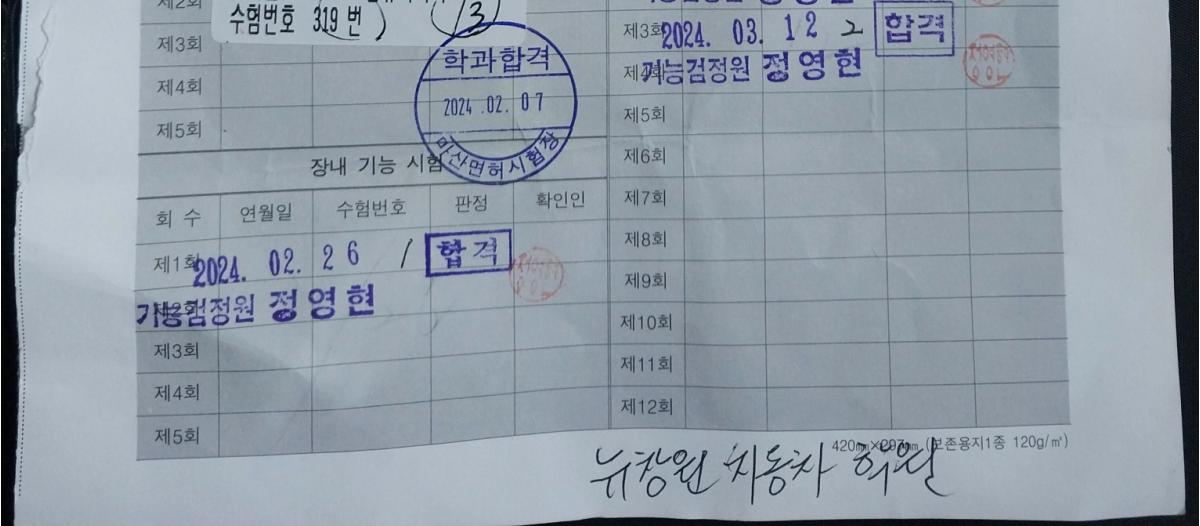 제2회
수험번호 319 번
제3회
제4회
제5회
학과합격
2024.02.07
마산면허시험장
장내 기능 시험
회 수 연월일 수험번호 판정 확인인
제1회 2024. 02. 26 1 합격
제2회
기능검정원 정영현
제3회
제4회
제5회
제3회 2024. 03. 12 2 합격
제4회
기능검정원 정영현
제5회
제6회
제7회
제8회
제9회
제10회
제11회
제12회
420㎜×297㎜ (보존용지1종 120g/㎡)
뉴창원 자동차 학원